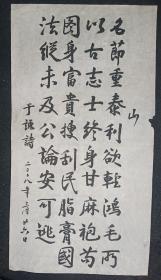 名節重泰利欲輕鴻毛所
山
以古志士終身甘麻袍苟
圖身富貴刮民脂膏國
法縱未及公論安可逃
于謙詩
二〇〇八年月廿六日